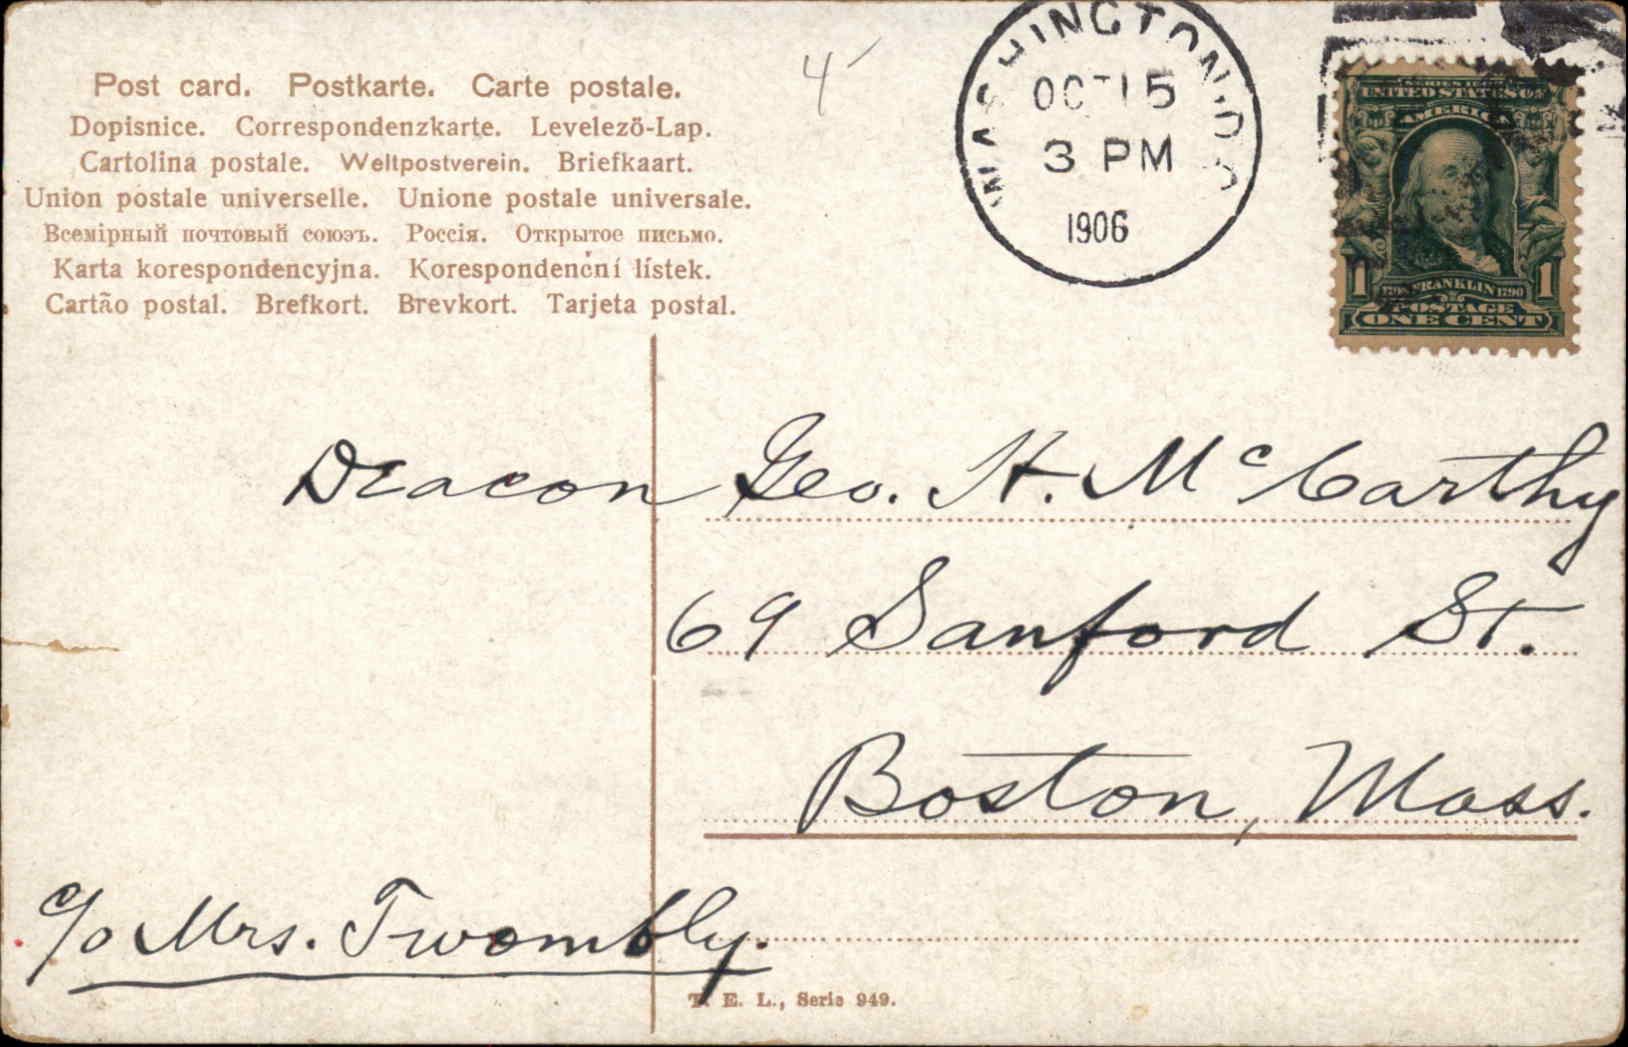 Post card. Postkarte. Carte postale.
Dopisnice. Correspondenzkarte. Levelező-Lap.
Cartolina postale. Weltpostverein. Briefkaart.
Union postale universelle. Unione postale universale.
Всемірный почтовый союзъ. Россія. Открытое письмо.
Karta korespondencyjna. Korespondenční lístek.
Cartão postal. Brefkort. Brevkort. Tarjeta postal.
4
WASHINGTON, D.C.
OCT 15
3 PM
1906
UNITED STATES OF
AMERICA
1 FRANKLIN 1790 1
POSTAGE
ONE CENT
Deacon Geo. H. McCarthy
69 Sanford St.
Boston, Mass.
c/o Mrs. Twombly.
T. E. L., Serie 949.